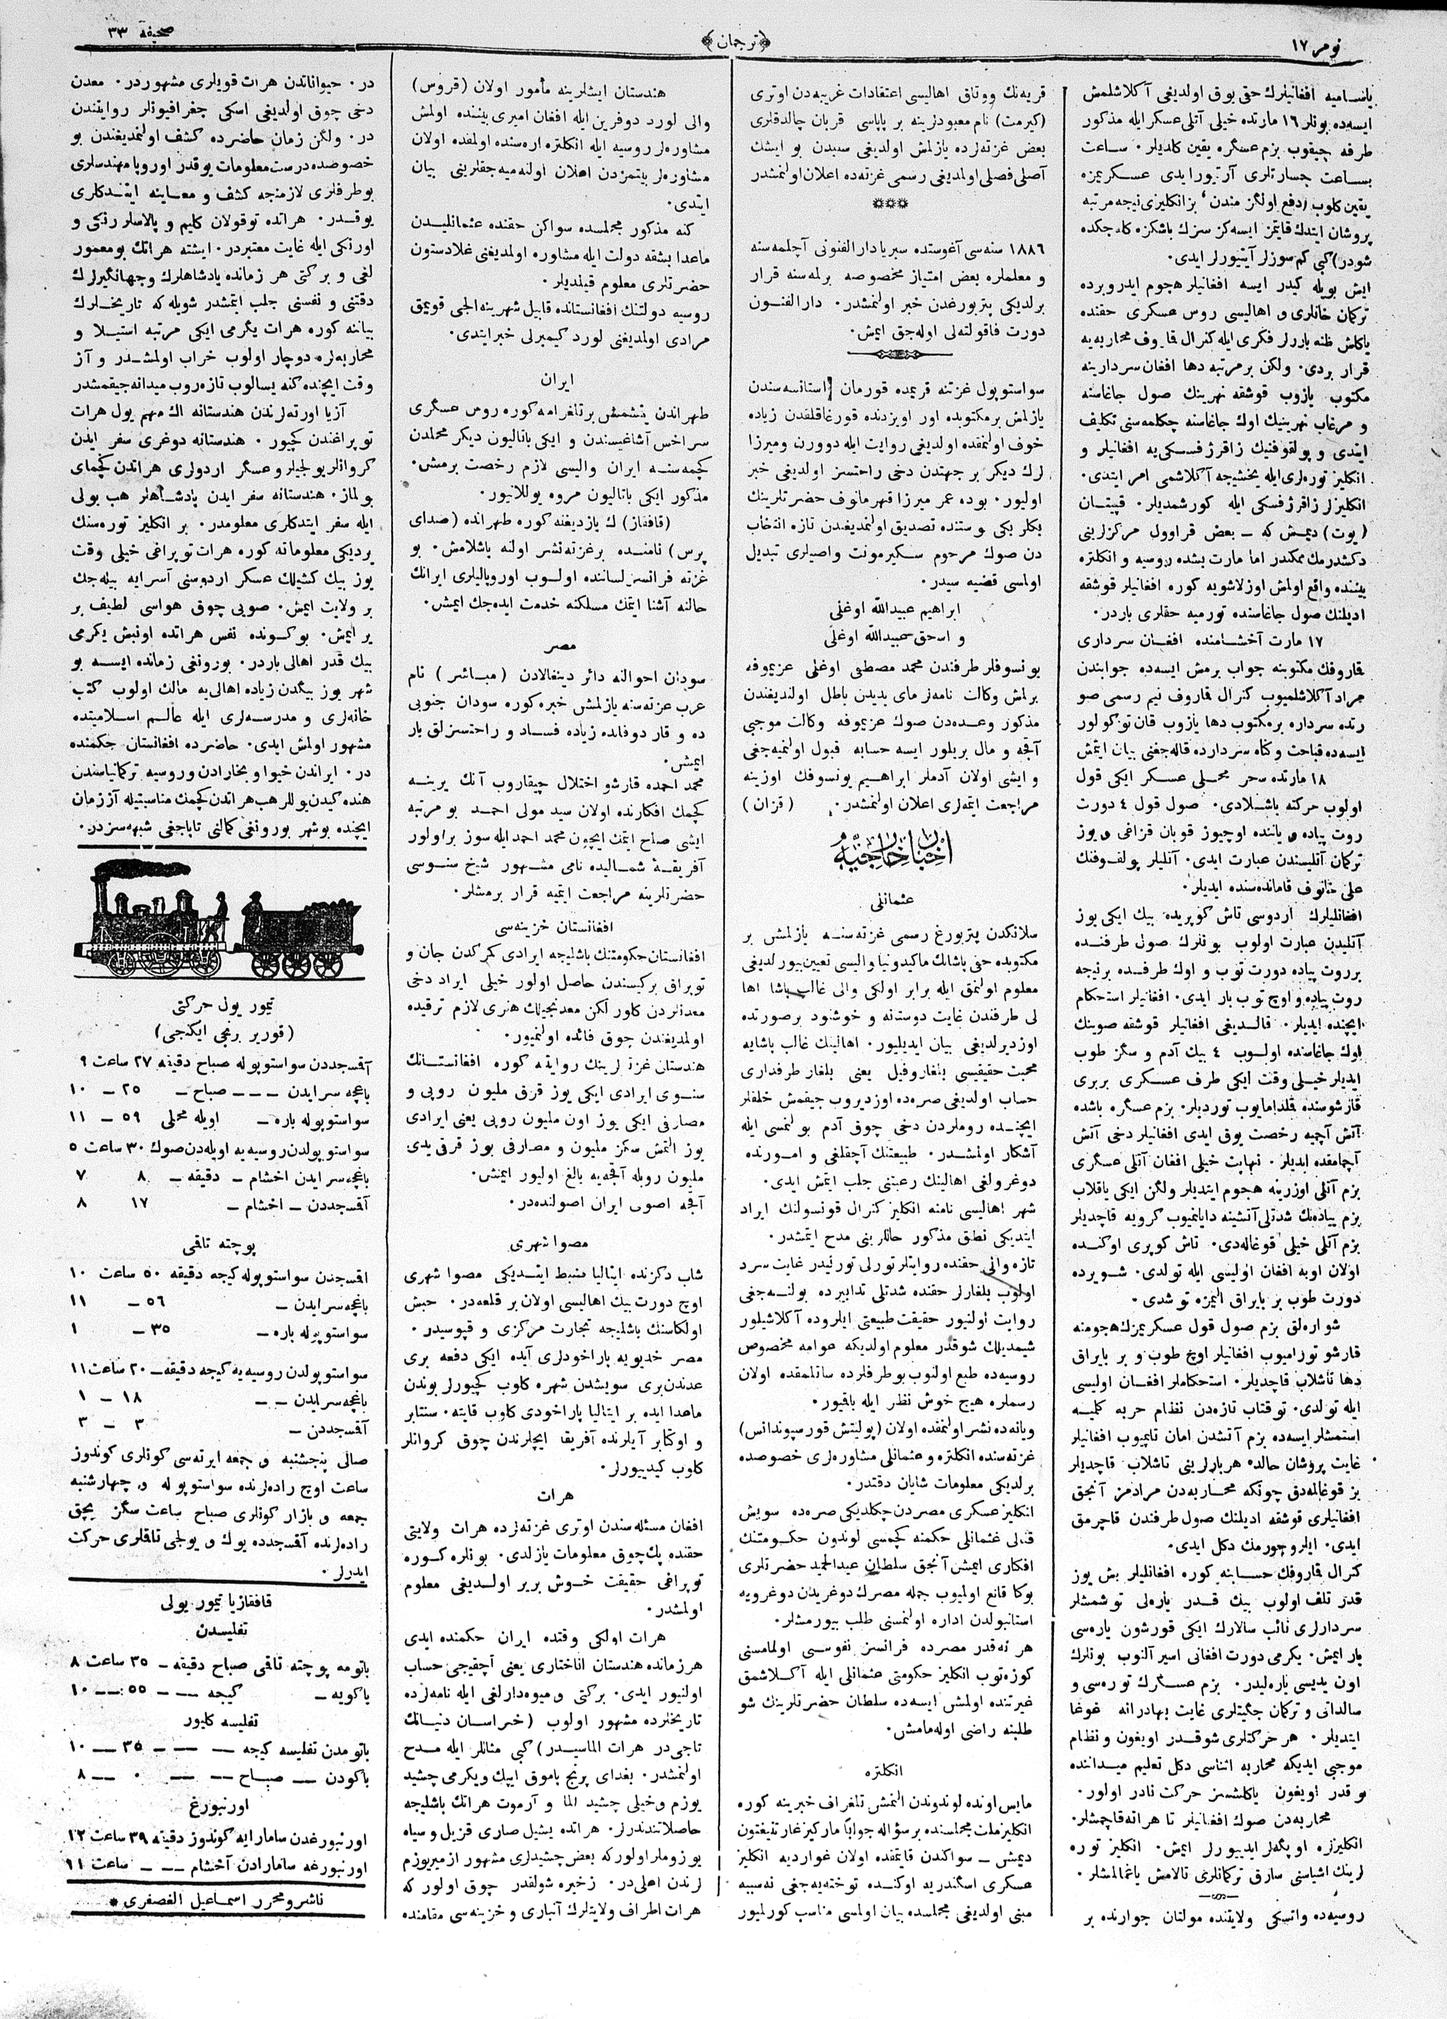 نومر ١٧
﴿ترجمان﴾
صحیفه ٣٣
ایسه‌ده بونلر ١٦ مارتده خیلی آتلی عسکر ایله مذکور
طرفه چیقوب بزم عسکره یقین کلدیلر. ساعت
ایش بویله کیدر ایسه افغانیلر هجوم ایدر و برده
ترکمان خانلری و اهالیسی روس عسکری حقنده
قرار بردی. ولکن بر مرتبه دها افغان سردارینه
مکتوب یازوب قوشقه نهرینك صول جاغاسنه
و مرغاب نهرینك اوك جاغاسنه چکلمه‌سنی تکلیف
ایتدی و پولقوفنیك زاقرژفسکی‌یه افغانیلر و
انکلیز توره‌لری ایله یخشیجه آکلاشمی امر ایتدی.
انکلیزلر زاقرژفسکی ایله کورشمدیلر. قپیتان
(یوت) دیمش که ـ بعض قراوول مرکزلرینی
دکشدرمك ممکندر اما مارت بشده روسیه و انکلتره
بیننده واقع اولمش اوزلاشویه کوره افغانیلر قوشقه
ادیلنك صول جاغاسنده تورمیه حقلری باردر.
١٧ مارت آخشامنده افغان سرداری
قاماروفك مکتوبنه جواب برمش ایسه‌ده جوابندن
مراد آکلاشلمیوب کنرال قماروف نیم رسمی صو
رتده سرداره بر مکتوب دها یازوب قان توکولور
ایسه‌ده قباحت و کناه سردارده قاله‌جغنی بیان ایتمش
١٨ مارتده سحر محلی عسکر ایکی قول
اولوب حرکته باشلادی. صول قول ٤ دورت
روت پیاده و یاننده اوچیوز قوبان قزاغی و یوز
ترکمان آتلیسندن عبارت ایدی. آتلیلر پولقوفنك
علی خانوف قامانده‌سنده ایدیلر.
افغانلیلرك اردوسی تاش کوپریده بیك ایکی یوز
آتلیدن عبارت اولوب بونلرك صول طرفنده
بر روت پیاده دورت توب و اوك طرفنده بر نیجه
روت پیاده و اوچ توب بار ایدی. افغانیلر استحکام
ایچنده ایدیلر. قالدیغی افغانیلر قوشقه صوینك
اوك جاغاسنده اولوب ٤ بیك آدم و سگز طوب
ایدیلر خیلی وقت ایکی طرف عسکری بربری
قارشوسنده قلدامایوب توردیلر. بزم عسکره باشده
آتش آچمیه رخصت یوق ایدی افغانیلر دخی آتش
آچمامقده ایدیلر. نهایت خیلی افغان آتلی عسکری
بزم آتلی اوزرینه هجوم ایتدیلر ولکن ایکی یاقلاب
بزم پیاده‌نك شدتلی آتشینه دایانمیوب کرویه قاچدیلر
بزم آتلی خیلی قوغاله‌دی. تاش کوپری اوکنده
اولان اوبه افغان اولیسی ایله تولدی. شو یرده
دورت طوب بر بایراق المزه توشدی.
شو ارەلق بزم صول قول عسکریمزك هجومنه
قارشو تورامیوب افغانیلر اوچ طوب و بر بایراق
دها تاشلاب قاچدیلر. استحکاملر افغان اولیسی
ایله تولدی. توقتاب تازه‌دن نظام حربه کلمیه
استمشلر ایسه‌ده بزم آتشدن امان تاپمیوب افغانیلر
غایت پروشان حالده هر بارلرینی تاشلاب قاچدیلر
بز قوغالمه‌دق چونکه محاربه‌دن مرادمز آنجق
افغانیلری قوشقه ادیلنك صول طرفندن قاچرمق
ایدی. ایلرو چورمك دکل ایدی.
کنرال قماروفك حسابنه کوره افغانلیلر بش یوز
قدر تلف اولوب بیك قدر یاره‌لی توشمشلر
سردارلری نائب سالارك ایکی قورشون یاره‌سی
بار ایمش. یکرمی دورت افغانی اسیر آلنوب بونلرك
اون یدیسی یاره‌لیدر. بزم عسکرك توره‌سی و
سالداتی و ترکمان جکیتلری غایت بهادرانه غوغا
ایتدیلر. هر حرکتلری شو قدر اویغون و نظام
موجبی ایدیکه محاربه اثناسی دکل تعلیم میداننده
بو قدر اویغون یاکلشمز حرکت نادر اولور.
محاربه‌دن صوك افغانیلر تا هراته قاچمشلر.
انکلیزلره اوپکه‌لر ایدییورلر ایمش. انکلیز توره
لرینك اشیاسنی سارق ترکمانلری تالامش یاغمالمشلر.
روسیه‌ده واتسکی ولایتنده مولتان جوارنده بر
قریه‌نك ووتاق اهالیسی اعتقادات غریبه‌دن اوتری
(کیرمت) نام معبودلرینه بر پاپاسی قربان چالدقلری
بعض غزته‌لرده یازلمش اولدیغی سببدن بو ایشك
آصلی فصلی اولمدیغی رسمی غزته‌ده اعلان اولنمشدر
***
١٨٨٦ سنه‌سی آغوستده سبریا دار الفنونی آچلمه‌سنه
و معلملره بعض امتیاز مخصوصه برلمه‌سنه قرار
برلدیکی پتربورغدن خبر اولنمشدر. دار الفنون
دورت فاقولته‌لی اوله‌جق ایمش.
سواستوپول غزتنه قریمده قورمان استانسه‌سندن
یازلمش بر مکتوبده اور اویزدنده قورغاقلقدن زیاده
خوف اولنمقده اولدیغی روایت ایله دوورن و میرزا
لرك دیکر بر جهتدن دخی راحتسز اولدیغی خبر
اولیور. بوده عمر میرزا قهرمانوف حضرتلرینك
بکلر بکی پوستنده تصدیق اولنمدیغندن تازه انتخاب
دن صوك مرحوم سکیرمونت واصیلری تبدیل
اولمسی قضیه سیدر.
ابراهیم عبیدالله اوغلی
و اسحق سعیدالله اوغلی
یونسوفلر طرفندن محمد مصطفی اوغلی عزیموفه
برلمش وکالت نامه‌لرمای یدیدن باطل اولندیغندن
مذکور وعده‌دن صوك عزیموفه وکالت موجبی
آقچه و مال بریلور ایسه حسابه قبول اولنمیه‌جغی
و ایشی اولان آدملر ابراهیم یونسوفك اوزینه
مراجعت ایتمه‌لری اعلان اولنمشدر. (قزان)
اخبار خارجیه
عثمانلی
سلانکدن پتربورغ رسمی غزته‌سنه یازلمش بر
معلوم اولنمق ایله برابر اولکی والی غالب پاشا اها
لی طرفندن غایت دوستانه و خوشنود بر صورتده
اوزدیرلدیغی بیان ایدیلیور. اهالینك غالب پاشایه
محبت حقیقیسی بلغاروفیل یعنی بلغار طرفداری
حساب اولدیغی صره‌ده اوزدیروب جیقمش خلقلر
ایچنده روملردن دخی چوق آدم بولنمسی ایله
آشکار اولمشدر. طبیعتنك آچقلغی و امورنده
دوغرولغی اهالینك رغبتنی جلب ایتمش ایدی.
شهر اهالیسی نامنه انکلیز کنرال قونسولنك ایراد
ایتدیکی نطق مذکور حاللرینی مدح ایتمشدر.
تازه والی حقنده روایتلر تورلی تورلیدر غایت سرد
اولوب بلغارلر حقنده شدتلی تدابیرده بولنه‌جغی
روایت اولنیور حقیقت طبیعتی ایلروده آکلاشیلور
شیمدیلك شو قدر معلوم اولدیکه عوامه مخصوص
روسیه‌ده طبع اولنوب بو طرفلرده ساتلمقده اولان
رسملره هیچ خوش نظر ایله باقمیور.
ویانه‌ده نشر اولنمقده اولان (پولیتش قورسپوندانس)
غزته‌سنده انکلتره و عثمانلی مشاوره‌لری خصوصده
برلدیکی معلومات شایان دقتدر.
انکلیز عسکری مصردن چکلدیکی صره‌ده سویش
قنلی عثمانلی حکمنه کچمسی لوندون حکومتنك
افکاری ایمش آنجق سلطان عبدالحمید حضرتلری
بوکا قانع اولمیوب جمله مصرك دوغریدن دوغرویه
استانبولدن اداره اولنمسنی طلب بیورمشلر.
هر نه‌قدر مصرده فرانسز نفوسی اولمامسنی
کوزه‌توب انکلیز حکومتی عثمانلی ایله آکلاشمق
غیرتنده اولمش ایسه‌ده سلطان حضرتلرینك شو
طلبنه راضی اوله‌مامش.
انکلتره
مایس اونده لوندوندن النمش تلغراف خبرینه کوره
انکلیز ملت مجلسنده بر سؤاله جواباً مارکیز غارتینغتون
دیمش ـ سواکندن قایتمقده اولان غواردیه انکلیز
عسکری اسگندریه اوکنده توخته‌یه‌جغی نه سببه
مبنی اولدیغی مجلسده بیان اولمسی مناسب کورلمیور
هندستان ایشلرینه مأمور اولان (قروس)
والی لورد دوفرین ایله افغان امیری بیننده اولمش
مشاوره‌لر روسیه ایله انکلتره اره‌سنده اولمقده اولان
مشاوره‌لر بیتمزدن اعلان اولنه‌میه‌جقلرینی بیان
ایتدی.
کنه مذکور مجلسده سواکن حقنده عثمانلیدن
ماعدا بشقه دولت ایله مشاوره اولمدیغنی غلادستون
حضرتلری معلوم قیلدیلر.
روسیه دولتنك افغانستانده قابیل شهرینه الچی قویمق
مرادی اولمدیغنی لورد کیمبرلی خبر ایتدی.
ایران
طهراندن یتشمش برتلغرامه کوره روس عسکری
سراخس آشاغیسندن و ایکی باتالیون دیکر محلدن
کچمه‌سنه ایران والیسی لازم رخصت برمش.
مذکور ایکی باتالیون مروه یوللانیور.
(قافقاز) ك یازدیغنه کوره طهرانده (صدای
پرس) نامنده بر غزته نشر اولنه باشلامش. بو
غزته فرانسز لساننده اولوب اوروپالیلری ایرانك
حالنه آشنا ایتمك مسلکنه خدمت ایده‌جك ایمش.
مصر
سودان احوالنه دائر دینغالادن (مباشر) نام
عرب غزته‌سنه یازلمش خبره کوره سودان جنوبی
ده و قاردوفانده زیاده فساد و راحتسزلق بار
ایمش.
محمد احمده قارشو اختلال چیقاروب آنك یرینه
کچمك افکارنده اولان سید مولی احمد بو مرتبه
ایشی صاح ایتمك ایچون محمد احمد ایله سوز بر اولور
آفریقهٔ شمالیده نامی مشهور شیخ سنوسی
حضرتلرینه مراجعت ایتمیه قرار برمشلر.
افغانستان خزینه‌سی
افغانستان حکومتنك باشلیجه ایرادی کمرکدن جان و
توپراق برکیسندن حاصل اولور خیلی ایراد دخی
معدنلردن کلور لکن معدنجیلك هنری لازم ترقیده
اولمدیغندن چوق فائده اولنمیور.
هندستان غزتلرینك روایته کوره افغانستانك
سنوی ایرادی ایکی یوز قرق ملیون روپی و
مصارفی ایکی یوز اون ملیون روپی یعنی ایرادی
یوز التمش سکز ملیون و مصارفی یوز قرق یدی
ملیون روبله آقچه‌یه بالغ اولیور ایمش.
آقچه اصولی ایران اصولنده‌در.
مصوا شهری
شاب دکزنده ایتالیا ضبط ایتدیکی مصوا شهری
اوچ دورت بیك اهالیسی اولان بر قلعه‌در. حبش
اولکاسنك باشلیجه تجارت مرکزی و قپوسیدر.
مصر خدیویه پاراخودلری آیده ایکی دفعه بری
عدندن بری سویشدن شهره کلوب کچیورلر بوندن
ماعدا ایده بر ایتالیا پاراخودی کلوب قایته. سنتابر
و اوکتابر آیلرنده آفریقا ایچلرندن چوق کروانلر
کلوب کیدییورلر.
هرات
افغان مسئله‌سندن اوتری غزته‌لرده هرات ولایتی
حقنده پك چوق معلومات یازلدی. بونلره کوره
توپراغی حقیقت خوش بر یر اولدیغی معلوم
اولمشدر.
هرات اولکی وقتده ایران حکمنده ایدی
هر زمانده هندستان اناختاری یعنی آچقیچی حساب
اولنیور ایدی. برکتی و میوه‌دارلغی ایله نامه‌لرده
تاریخلرده مشهور اولوب (خراسان دنیانك
تاجی‌در هرات الماسیدر) کبی مثاللر ایله مدح
اولنمشدر. بغدای پرنج پاموق ایپك و یکرمی جشید
یوزم و خیلی جشید الما و آرموت هراتك باشلیجه
حاصلاتندندر. هراتده یشیل صاری قزیل و سیاه
یوزوملر اولور که بعض جشیدلری مشهور ازمیر یوزم
لرندن اعلی‌در. زخیره شولقدر چوق اولور که
هرات اطراف ولایتلرك آنباری و خزینه‌سی مقامنده
در. حیواناتدن هرات قویلری مشهوردر. معدن
دخی چوق اولدیغی اسکی جغرافیونلر روایتندن
در. ولکن زمان حاضرده کشف اولنمدیغندن بو
خصوصده درست معلومات یوقدر اوروپا مهندسلری
بو طرفلری لازمنجه کشف و معاینه ایتدکلری
یوقدر. هراتده توقولان کلیم و پالاسلر رنکی و
اورنکی ایله غایت معتبردر. ایشته هراتك بو معمور
لغی و برکتی هر زمانده پادشاهلرك و جهانگیرلرك
دقتنی و نفسنی جلب ایتمشدر شویله که تاریخلرك
بیاننه کوره هرات یکرمی ایکی مرتبه استیلا و
محاربه‌لره دوچار اولوب خراب اولمشدر و آز
وقت ایچنده کنه یسالوب تازه‌روب میدانه جیقمشدر
آزیا اورته‌لرندن هندستانه اك مهم یول هرات
توپراغندن کچیور. هندستانه دوغری سفر ایدن
کروانلر یولجیلر و عسکر اردولری هراتدن کچمای
بولماز. هندستانه سفر ایدن پادشاهلر هب بو یولی
ایله سفر ایتدکلری معلومدر. بر انکلیز توره‌سنك
بردیکی معلوماته کوره هرات توپراغی خیلی وقت
یوز بیك کشیلك عسکر اردوسنی آسرایه بیله‌جك
بر ولایت ایمش. صویی چوق هواسی لطیف بر
یر ایمش. بو کونده نفس هراتده اونبش یکرمی
بیك قدر اهالی باردر. بورونغی زمانده ایسه بو
شهر یوز بیگدن زیاده اهالی‌یه مالك اولوب کتب
خانه‌لری و مدرسه‌لری ایله عالم اسلامیتده
مشهور اولمش ایدی. حاضرده افغانستان حکمنده
در. ایراندن خیوا و بخارادن و روسیه ترکمانیاسندن
هنده کیدن یوللر هب هراتدن کچمك مناسبتیله آز زمان
ایچنده بو شهر بورونغی کمالنی تاپاجغی شبهه‌سزدر.
تیمور یول حرکتی
(قوریر یعنی ایکنجی)
آقمسجددن سواستوپوله صباح دقیقه ٢٧ ساعت ٩
باغچه سرایدن ـ ـ ـ صباح ـ ٢٥ ـ ١٠
سواستوپوله باره ـ اویله محلی ٥٩ ـ ١١
سواستوپولدن روسیه‌یه اویله‌دن صوك ٣٠ ساعت ٥
باغچه سرایدن اخشام ـ دقیقه ـ ٨ ٧
آقمسجددن ـ اخشام ـ ١٧ ٨
پوچته تاقی
اقمسجددن سواستوپوله کیجه دقیقه ٥٠ ساعت ١٠
باغچه سرایدن ـ ٥٦ ـ ١١
سواستوپوله باره ـ ٣٥ ـ ١
سواستوپولدن روسیه‌یه کیجه دقیقه ـ ٢٠ ساعت ١١
باغچه سرایدن ـ ـ ١٨ ـ ١
آقمسجددن ـ ٣ ـ ٣
صالی پنجشنبه و جمعه ایرته‌سی کونلری کوندوز
ساعت اوچ راده‌لرنده سواستوپوله و چهارشنبه
جمعه و بازار کونلری صباح ساعت سگز یچق
راده‌لرنده آقمسجدده یوك و یولجی تاقلری حرکت
ایدرلر.
قافقازیا تیمور یولی
تفلیسدن
باتومه پوچته تاقی صباح دقیقه ـ ٣٥ ساعت ٨
باکویه ـ کیجه ـ ـ ٥٥ ـ ١٠
تفلیسه کلیور
باتومدن تفلیسه کیجه ـ ـ ـ ٣٥ ـ ١٠
باکودن ـ صباح ـ ـ ٠ ـ ٨
اورنبورغ
اورنبورغدن سامارایه کوندوز دقیقه ٣٩ ساعت ١٢
اورنبورغه سامارادن آخشام ـ ـ ساعت ١١
ناشر و محرر اسماعیل الغصفری *